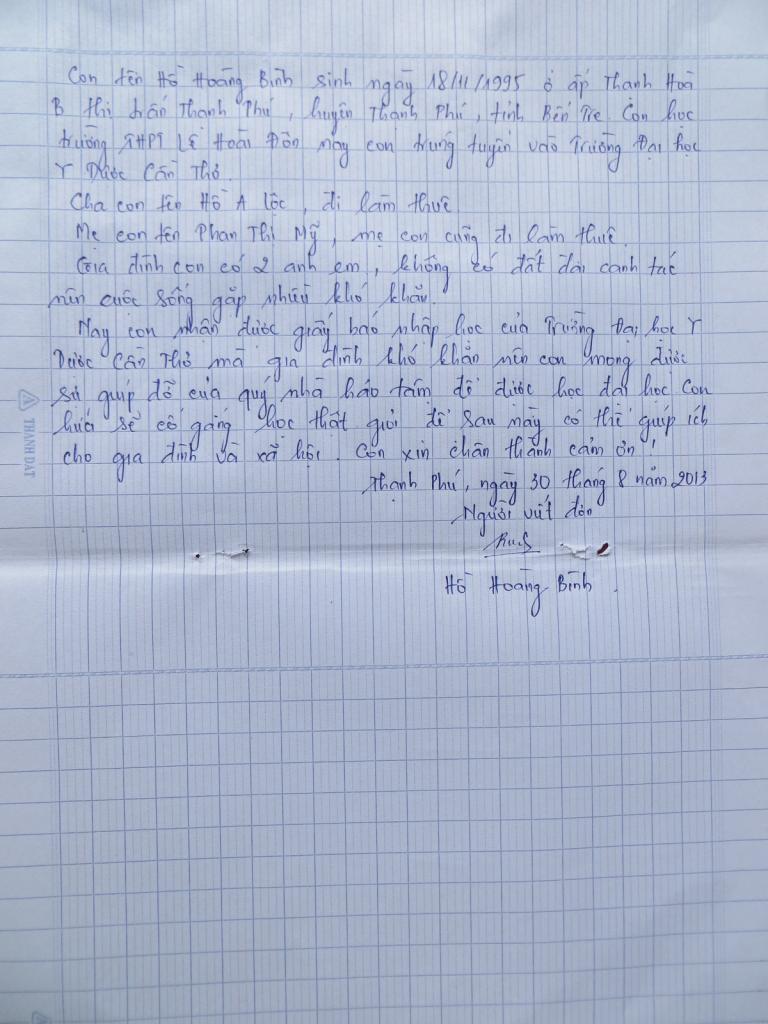 Con tên Hồ Hoàng Bình sinh ngày 18/11/1995 ở ấp Thạnh Hoà
B thị trấn Thạnh Phú, huyện Thạnh Phú, tỉnh Bến Tre. Con học
trường THPT Lê Hoài Đôn nay con trúng tuyển vào Trường Đại học
Y Dược Cần Thơ.
Cha con tên Hồ A Lộc, đi làm thuê
Mẹ con tên Phan Thị Mỹ, mẹ con cũng đi làm thuê.
Gia đình con có 2 anh em, không có đất đai canh tác
nên cuộc sống gặp nhiều khó khăn.
Nay con nhận được giấy báo nhập học của Trường Đại học Y
Dược Cần Thơ mà gia đình khó khăn nên con mong được
sự giúp đỡ của quý nhà hảo tâm để được học đại học. Con
hứa sẽ cố gắng học thật giỏi để sau này có thể giúp ích
cho gia đình và xã hội. Con xin chân thành cảm ơn!
Thạnh Phú, ngày 30 tháng 8 năm 2013
Người viết đơn
Hồ Hoàng Bình.
THANH DAT